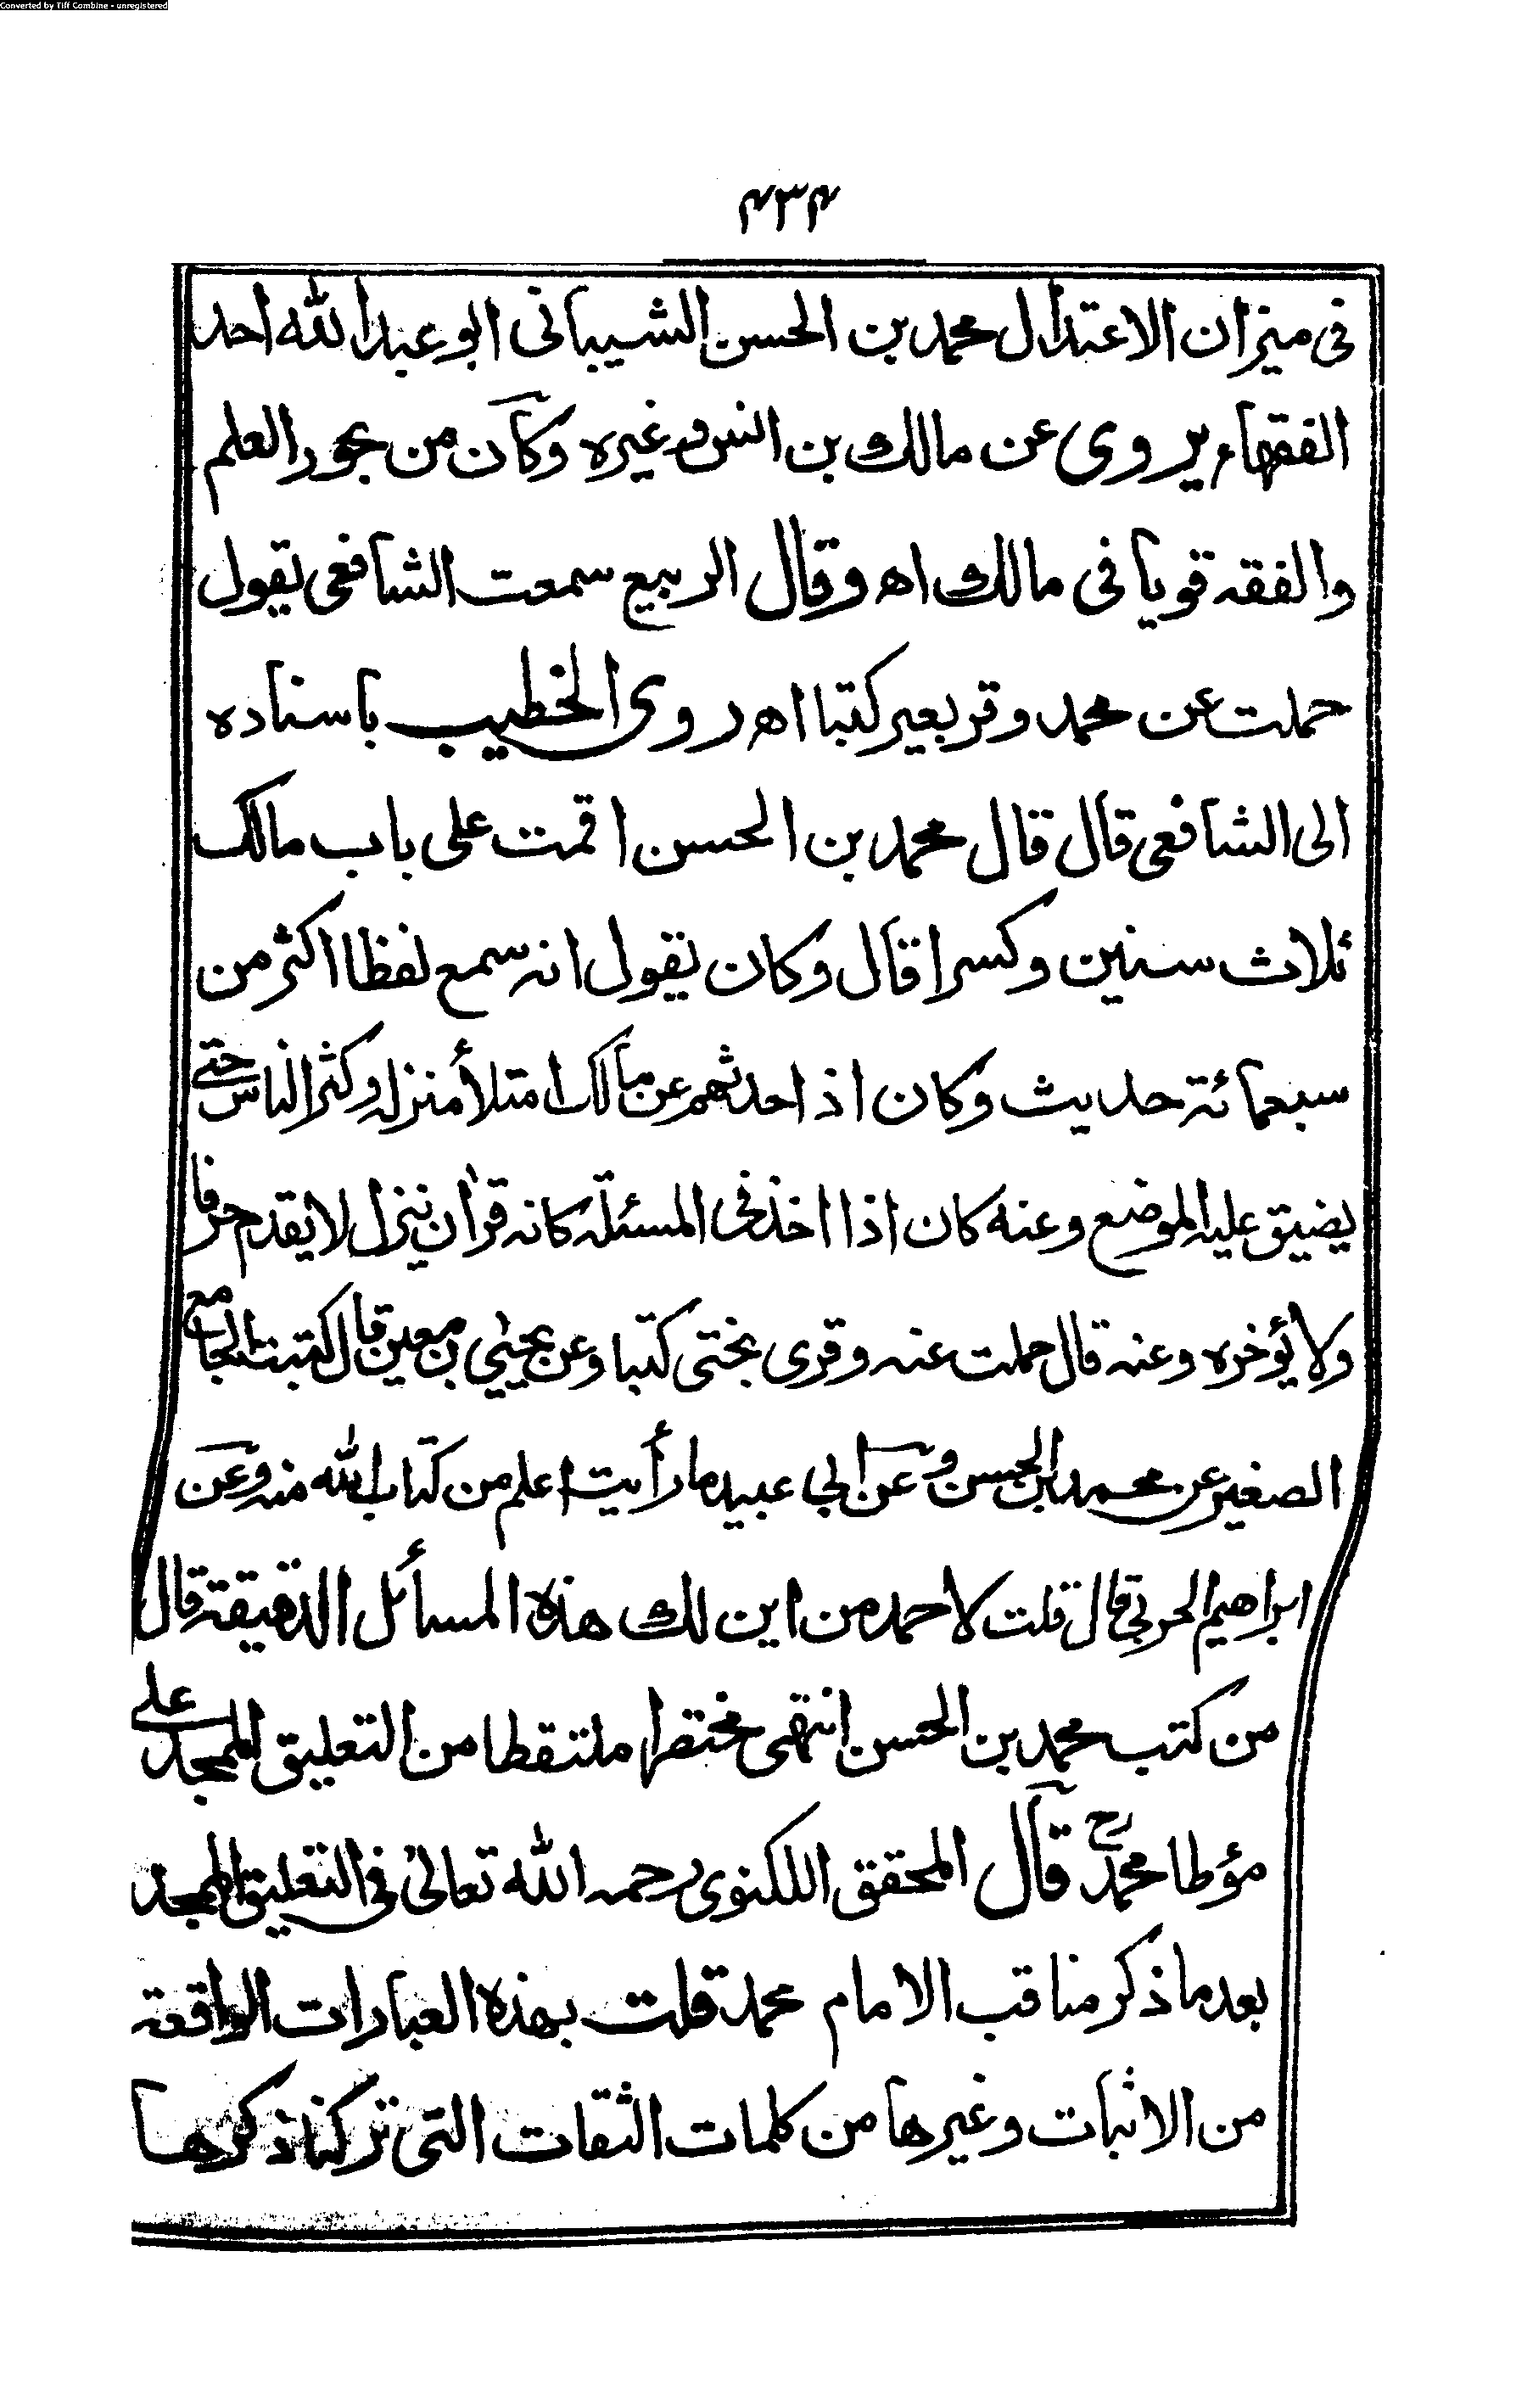 Converted by Tiff Combine - unregistered
۴۳۴
فی میزان الاعتدال محمد بن الحسن الشیبانی ابو عبد الله احد
الفقهاء یروی عن مالك بن انس وغیره وکان من بحور العلم
والفقه قویا فی مالك اھ وقال الربیع سمعت الشافعی یقول
حملت عن محمد وقر بعیر کتبا اھ روی الخطیب باسناده
الی الشافعی قال قال محمد بن الحسن اقمت علی باب مالك
ثلاث سنین وکسرا قال وکان یقول انه سمع لفظا اکثر من
سبعمائة حدیث وکان اذا حدثهم عن مالك امتلأ منزله وکثر الناس حتی
یضیق علیه الموضع وعنه کان اذا اخذ فی المسئلة کانه قرآن ینزل لا یقدم حرفا
ولا یؤخره وعنه قال حملت عنه وقری بختی کتبا وعن یحیی بن معین قال کتبت الجامع
الصغیر عن محمد بن الحسن وعن ابی عبید ما رأیت اعلم من کتاب الله منه وعن
ابراهیم الحربی قال قلت لاحمد من این لك هذه المسائل الدقیقة قال
من کتب محمد بن الحسن انتهی مختصرا ملتقطا من التعلیق الممجد علی
مؤطا محمدؒ قال المحقق اللکنوی رحمه الله تعالی فی التعلیق الممجد
بعد ما ذکر مناقب الامام محمد قلت بهذه العبارات الواقعة
من الاثبات وغیرها من کلمات الثقات التی ترکنا ذکرها